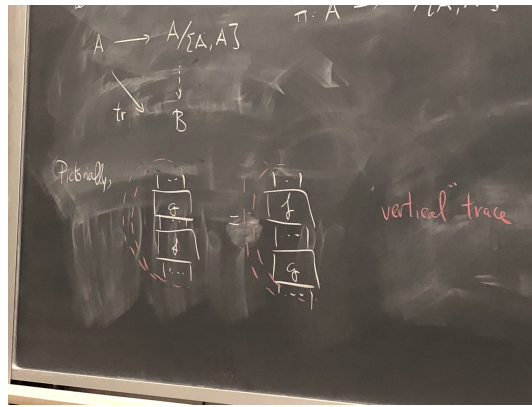 π: A
A → A/[A, A]
tr
B
Pictorially,
g
=
f
f
g
"vertical" trace